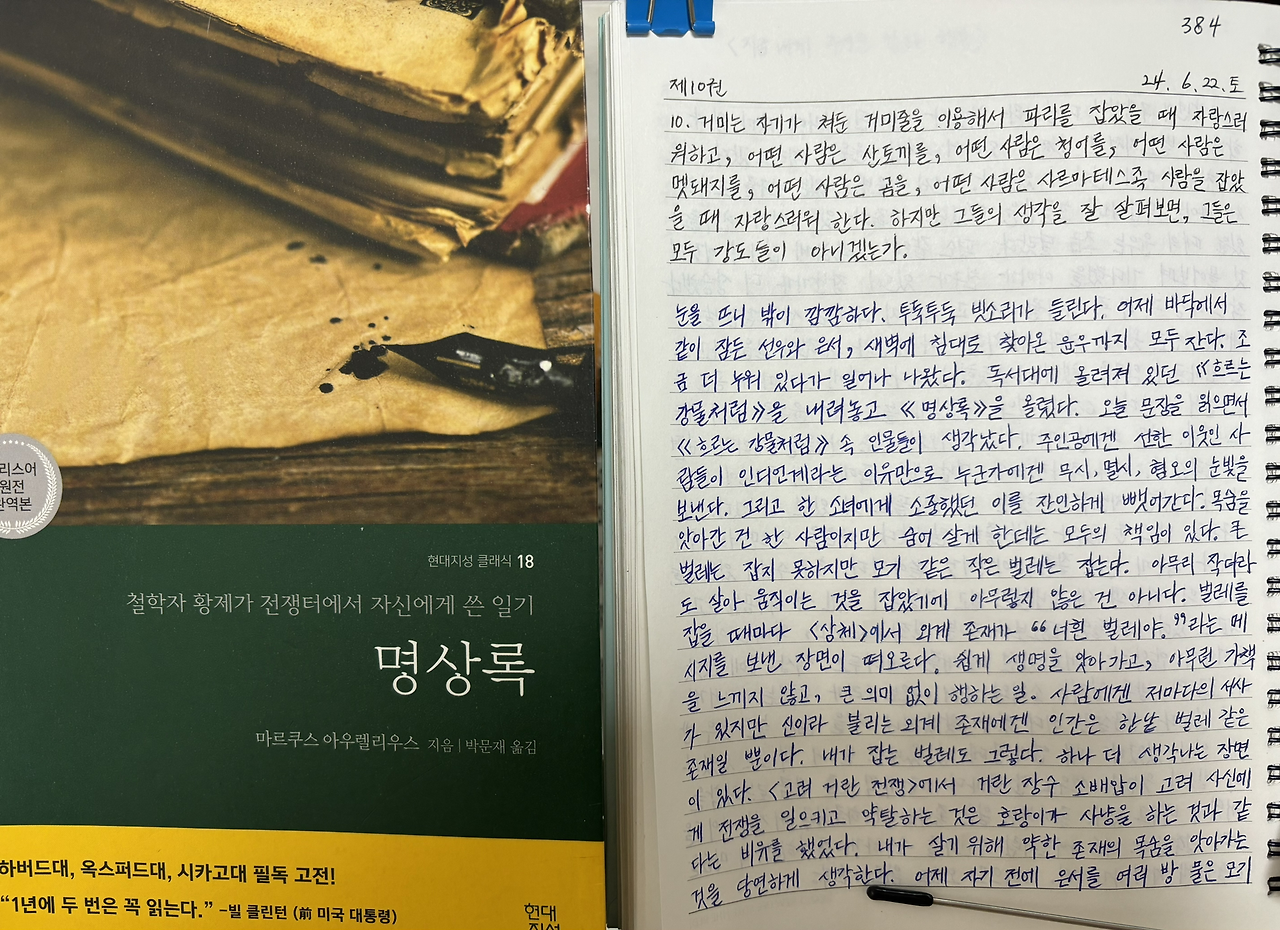 리스어
원전
완역본
현대지성 클래식 18
철학자 황제가 전쟁터에서 자신에게 쓴 일기
명상록
마르쿠스 아우렐리우스 지음 | 박문재 옮김
하버드대, 옥스퍼드대, 시카고대 필독 고전!
“1년에 두 번은 꼭 읽는다.” –빌 클린턴 (前 미국 대통령)
현대
지성
384
제10권 24. 6. 22. 토
10. 거미는 자기가 쳐둔 거미줄을 이용해서 파리를 잡았을 때 자랑스러
워하고, 어떤 사람은 산토끼를, 어떤 사람은 청어를, 어떤 사람은
멧돼지를, 어떤 사람은 곰을, 어떤 사람은 사르마테스족 사람을 잡았
을 때 자랑스러워 한다. 하지만 그들의 생각을 잘 살펴보면, 그들은
모두 강도들이 아니겠는가.
눈을 뜨니 밖이 깜깜하다. 투둑투둑 빗소리가 들린다. 어제 바닥에서
같이 잠든 선우와 은서, 새벽에 침대로 찾아온 윤우까지 모두 잔다. 조
금 더 누워 있다가 일어나 나왔다. 독서대에 올려져 있던 《흐르는
강물처럼》을 내려놓고 《명상록》을 올렸다. 오늘 문장을 읽으면서
《흐르는 강물처럼》 속 인물들이 생각났다. 주인공에겐 선한 이웃인 사
람들이 인디언계라는 이유만으로 누군가에겐 무시, 멸시, 혐오의 눈빛을
보낸다. 그리고 한 소녀에게 소중했던 이를 잔인하게 뺏어간다. 목숨을
앗아간 건 한 사람이지만 숨어 살게 한데는 모두의 책임이 있다. 큰
벌레는 잡지 못하지만 모기 같은 작은 벌레는 잡는다. 아무리 작더라
도 살아 움직이는 것을 잡았기에 아무렇지 않은 건 아니다. 벌레를
잡을 때마다 <삼체>에서 외계 존재가 “너흰 벌레야.”라는 메
시지를 보낸 장면이 떠오른다. 쉽게 생명을 앗아가고, 아무런 가책
을 느끼지 않고, 큰 의미 없이 행하는 일. 사람에겐 저마다의 서사
가 있지만 신이라 불리는 외계 존재에겐 인간은 한낱 벌레 같은
존재일 뿐이다. 내가 잡는 벌레도 그렇다. 하나 더 생각나는 장면
이 있다. <고려 거란 전쟁>에서 거란 장수 소배압이 고려 사신에
게 전쟁을 일으키고 약탈하는 것은 호랑이가 사냥을 하는 것과 같
다는 비유를 했었다. 내가 살기 위해 약한 존재의 목숨을 앗아가는
것을 당연하게 생각한다. 어제 자기 전에 은서를 여러 방 물은 모기